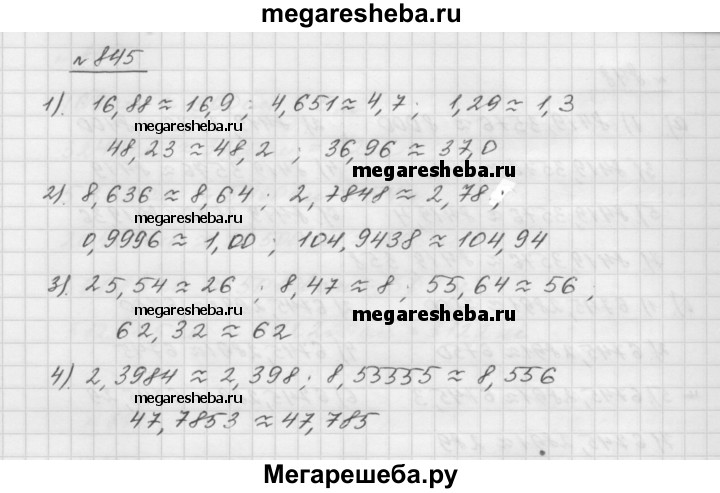 megaresheba.ru
№ 845
1). 16,88 ≈ 16,9 ; 4,651 ≈ 4,7 ; 1,29 ≈ 1,3
megaresheba.ru
48,23 ≈ 48,2 ; 36,96 ≈ 37,0
megaresheba.ru megaresheba.ru
2). 8,636 ≈ 8,64 ; 2,7848 ≈ 2,78 ;
megaresheba.ru
0,9996 ≈ 1,00 ; 104,9438 ≈ 104,94
3). 25,54 ≈ 26 ; 8,47 ≈ 8 ; 55,64 ≈ 56 ;
megaresheba.ru megaresheba.ru
62,32 ≈ 62
4). 2,3984 ≈ 2,398 ; 8,55555 ≈ 8,556
megaresheba.ru
47,7853 ≈ 47,785
Мегарешеба.ру